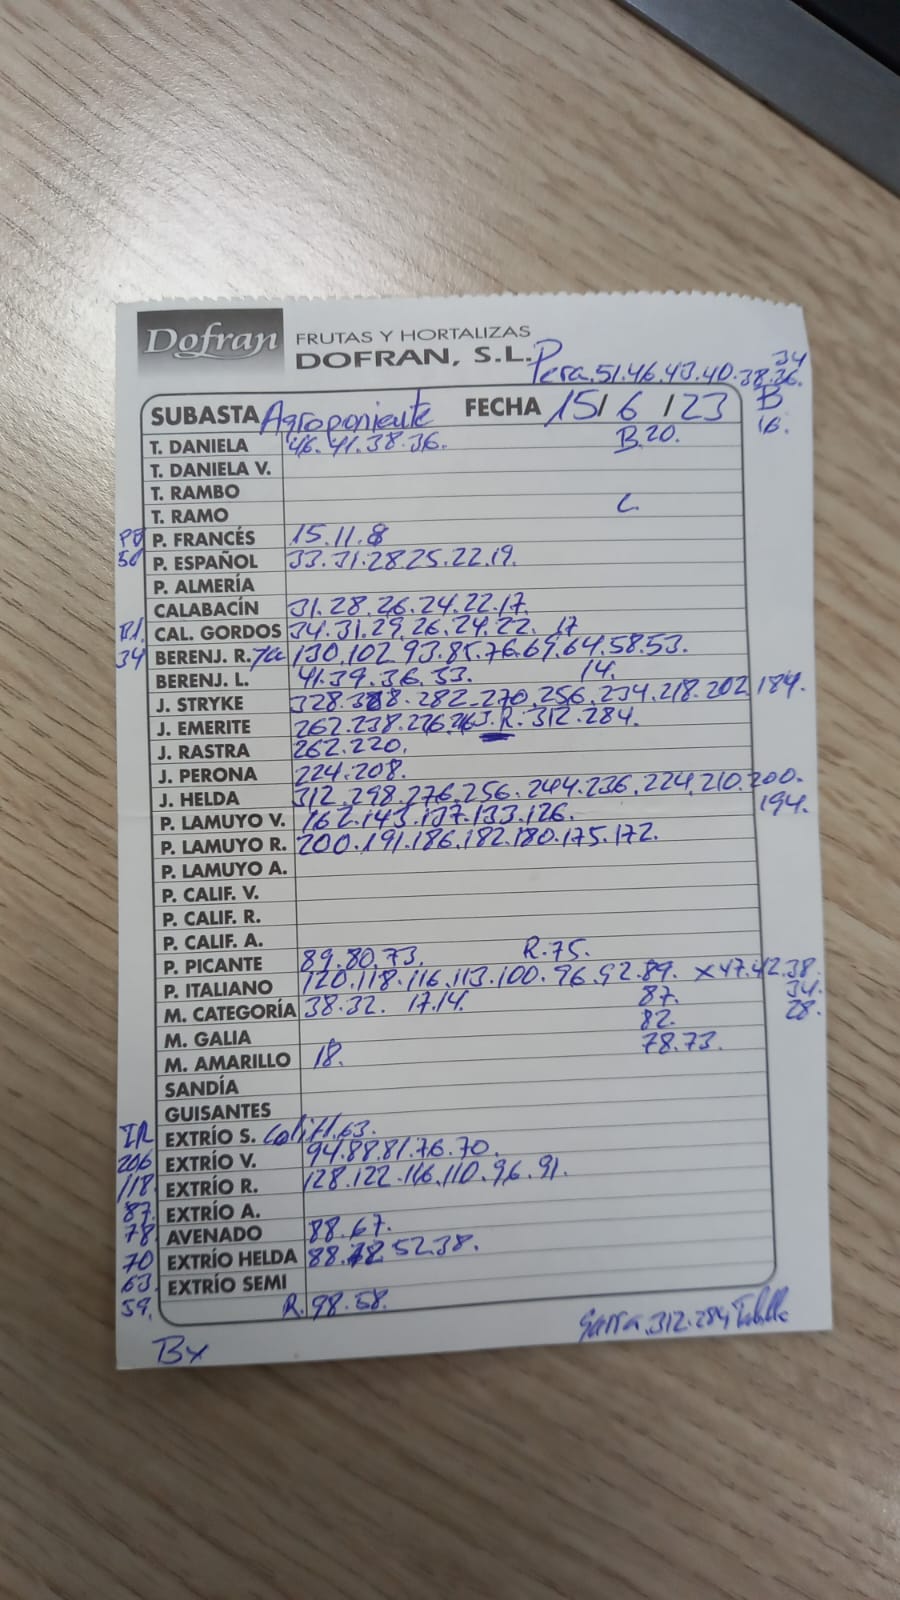 Dofran FRUTAS Y HORTALIZAS
DOFRAN, S.L. Pera.51.46.43.40.38.36.
34
SUBASTA Agroponiente FECHA 15/6/23 B
16.
T. DANIELA 46.41.38.36. B.20.
T. DANIELA V.
T. RAMBO
T. RAMO C.
P. FRANCÉS 15.11.8
50 P. ESPAÑOL 33.31.28.25.22.19.
P. ALMERÍA
CALABACÍN 31.28.26.24.22.17.
CAL. GORDOS 34.31.29.26.24.22. 17
34 BERENJ. R. 130.102.93.85.76.69.64.58.53.
BERENJ. L. 41.39.36.33. 14.
J. STRYKE 328.308.282.270.256.234.218.202.184.
J. EMERITE 262.238.226. J.R. 312.284.
J. RASTRA 262.220.
J. PERONA 224.208.
J. HELDA 312.298.276.256.244.236.224.210.200.
194.
P. LAMUYO V. 162.143.137.133.126.
P. LAMUYO R. 200.191.186.182.180.175.172.
P. LAMUYO A.
P. CALIF. V.
P. CALIF. R.
P. CALIF. A.
P. PICANTE 89.80.73. R.75.
P. ITALIANO 120.118.116.113.100.96.92.89. x47.42.38.
34.
M. CATEGORÍA 38.32. 17.14. 87. 28.
M. GALIA 82.
M. AMARILLO 18. 78.73.
SANDÍA
GUISANTES
IR EXTRÍO S. 63.
206 EXTRÍO V. 94.88.81.76.70.
118 EXTRÍO R. 128.122.116.110.96.91.
87. EXTRÍO A.
78 AVENADO 88.67.
70 EXTRÍO HELDA 88. 52.38.
63. EXTRÍO SEMI
59. R.98.58.
Garra.312.284
Bx